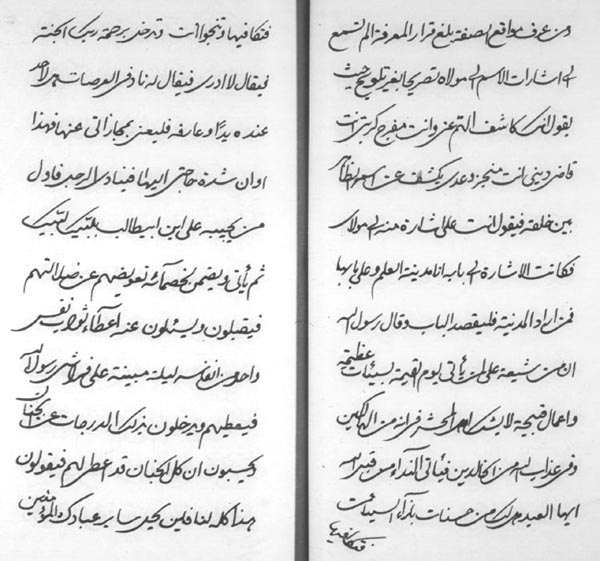 ومن عرف مواقع الصفة بلغ قرار المعرفة الم تسمع
الى اشارات الاسم الى مولاه تصريحا بغير تلويح حيث
يقول انت كاشف الهم عني وانت مفرج كربتي انت
قاضي ديني انت منجز وعدي يكشف عن اسمه الظاهر
بين خلقه فيقول انت علي اشارة منه الى مولاه
فكانت الاشارة الى بابه انا مدينة العلم وعلي بابها
فمن اراد المدينة فليقصد الباب وقال رسول الله
ان من شيعة علي لمن يأتي يوم القيمة بسيئات عظيمة
واعمال قبيحة لا يشك اهل المحشر في انه من الهالكين
وفي عذاب الله من الخالدين فيأتي النداء من قبل الله
ايها العبد من لك من حسنات بازاء السيئات
فتكافيها
فتكافيها وتنجو ان وتدخل برحمة ربك الجنة
فيقال لا ادري فيقال له ناد في العرصات هل لاحد
عنده يدا وعارفة فليعني بمجازاتي عنها فهذا
اوان شدة حاجتي اليها فينادي الرجل فاول
من يجيبه علي ابن ابيطالب لبيك لبيك
ثم يأتي ويضمن لخصمائه تعويضهم عن ظلاماتهم
فيقبلون ويسئلون عنه اعطاء ثواب نفس
واحد من انفاسه ليلة مبيته على فراش رسول الله
فيعطيهم ويدخلون بذلك الدرجات عن الجنان
وكيبون ان كل الجنان قد اعطى لهم فيقولون
هذا كله لنا فاين يحل ساير عبادك المؤمنين